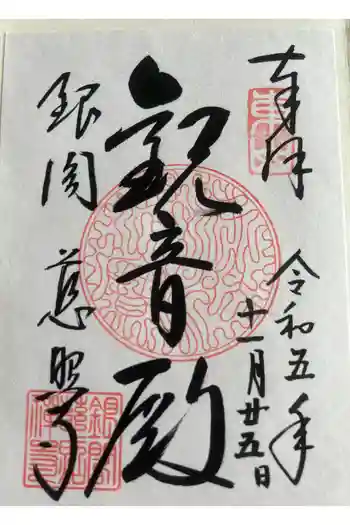 奉拝
令和五年
十一月廿五日
觀音殿
銀閣 慈照寺